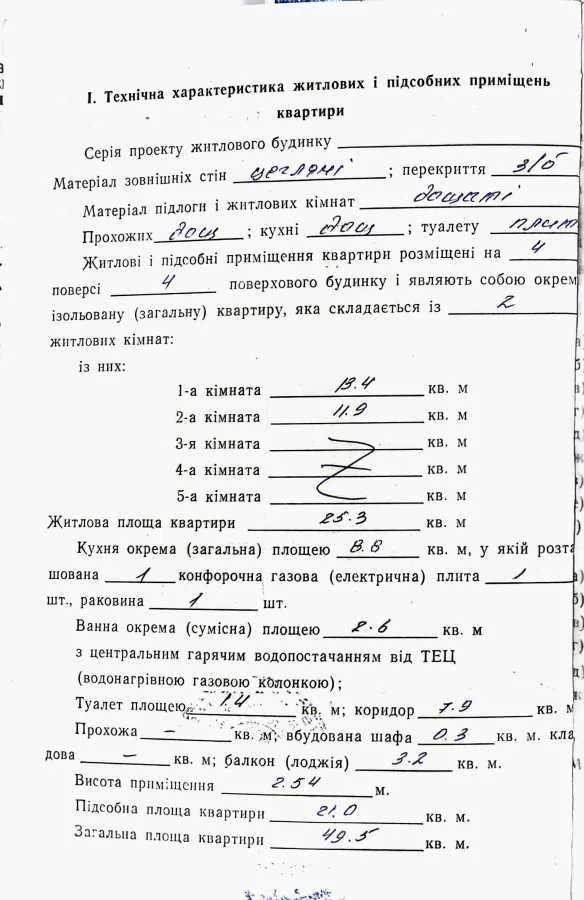 I. Технічна характеристика житлових і підсобних приміщень
квартири
Серія проекту житлового будинку
Матеріал зовнішніх стін цегляні ; перекриття з/б
Матеріал підлоги і житлових кімнат дощаті
Прохожих дощ ; кухні дощ ; туалету плит
Житлові і підсобні приміщення квартири розміщені на 4
поверсі 4 поверхового будинку і являють собою окрем
ізольовану (загальну) квартиру, яка складається із 2
житлових кімнат:
із них:
1-а кімната 13.4 кв. м
2-а кімната 11.9 кв. м
3-я кімната кв. м
4-а кімната кв. м
5-а кімната кв. м
Житлова площа квартири 25.3 кв. м
Кухня окрема (загальна) площею 8.8 кв. м, у якій розта
шована 1 конфорочна газова (електрична) плита 1
шт., раковина 1 шт.
Ванна окрема (сумісна) площею 2.6 кв. м
з центральним гарячим водопостачанням від ТЕЦ
(водонагрівною газовою колонкою);
Туалет площею 1.4 кв. м; коридор 7.9 кв. м
Прохожа – кв. м; вбудована шафа 0.3 кв. м. кла
дова – кв. м; балкон (лоджія) 3.2 кв. м.
Висота приміщення 2.54 м.
Підсобна площа квартири 21.0 кв. м.
Загальна площа квартири 49.5 кв. м.